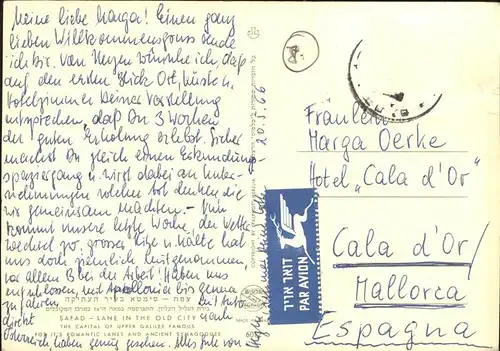 Meine liebe Marga! Einen ganz
lieben Willkommensgruss sende
ich Dir. Von Herzen wünsche ich, daß
auf den ersten Blick Ort, Küste u.
Hotelzimmer Deiner Vorstellung
entsprechen, daß Du 3 Wochen
der guten Erholung erlebst. Sicher
machst Du gleich einen Erkundung
spaziergang u. wirst dabei an Unter-
nehmungen solcher Art denken, die
wir gemeinsam machten. – Nun
kommt unsere letzte Woche, der Wetter
wechsel zw. grosser Hitze u. Kälte hat
uns doch ziemlich mitgenommen,
vor allem B bei der Arbeit. Haben uns
entschlossen, mit Apollonia bis Genua
zu fahren
direkt
nach
Österreich, haben genug gesehen. Alles Gute von
20.5.66
צפת - סימטא בעיר העתיקה
SAFAD - LANE IN THE OLD CITY
THE CAPITAL OF UPPER GALILEE FAMOUS
FOR ITS ROMANTIC LANES AND ANCIENT SYNAGOGUES
דואר אויר
PAR AVION
Fräulein
Marga Oerke
Hotel „Cala d'Or"
Cala d'Or/
Mallorca
Espagna